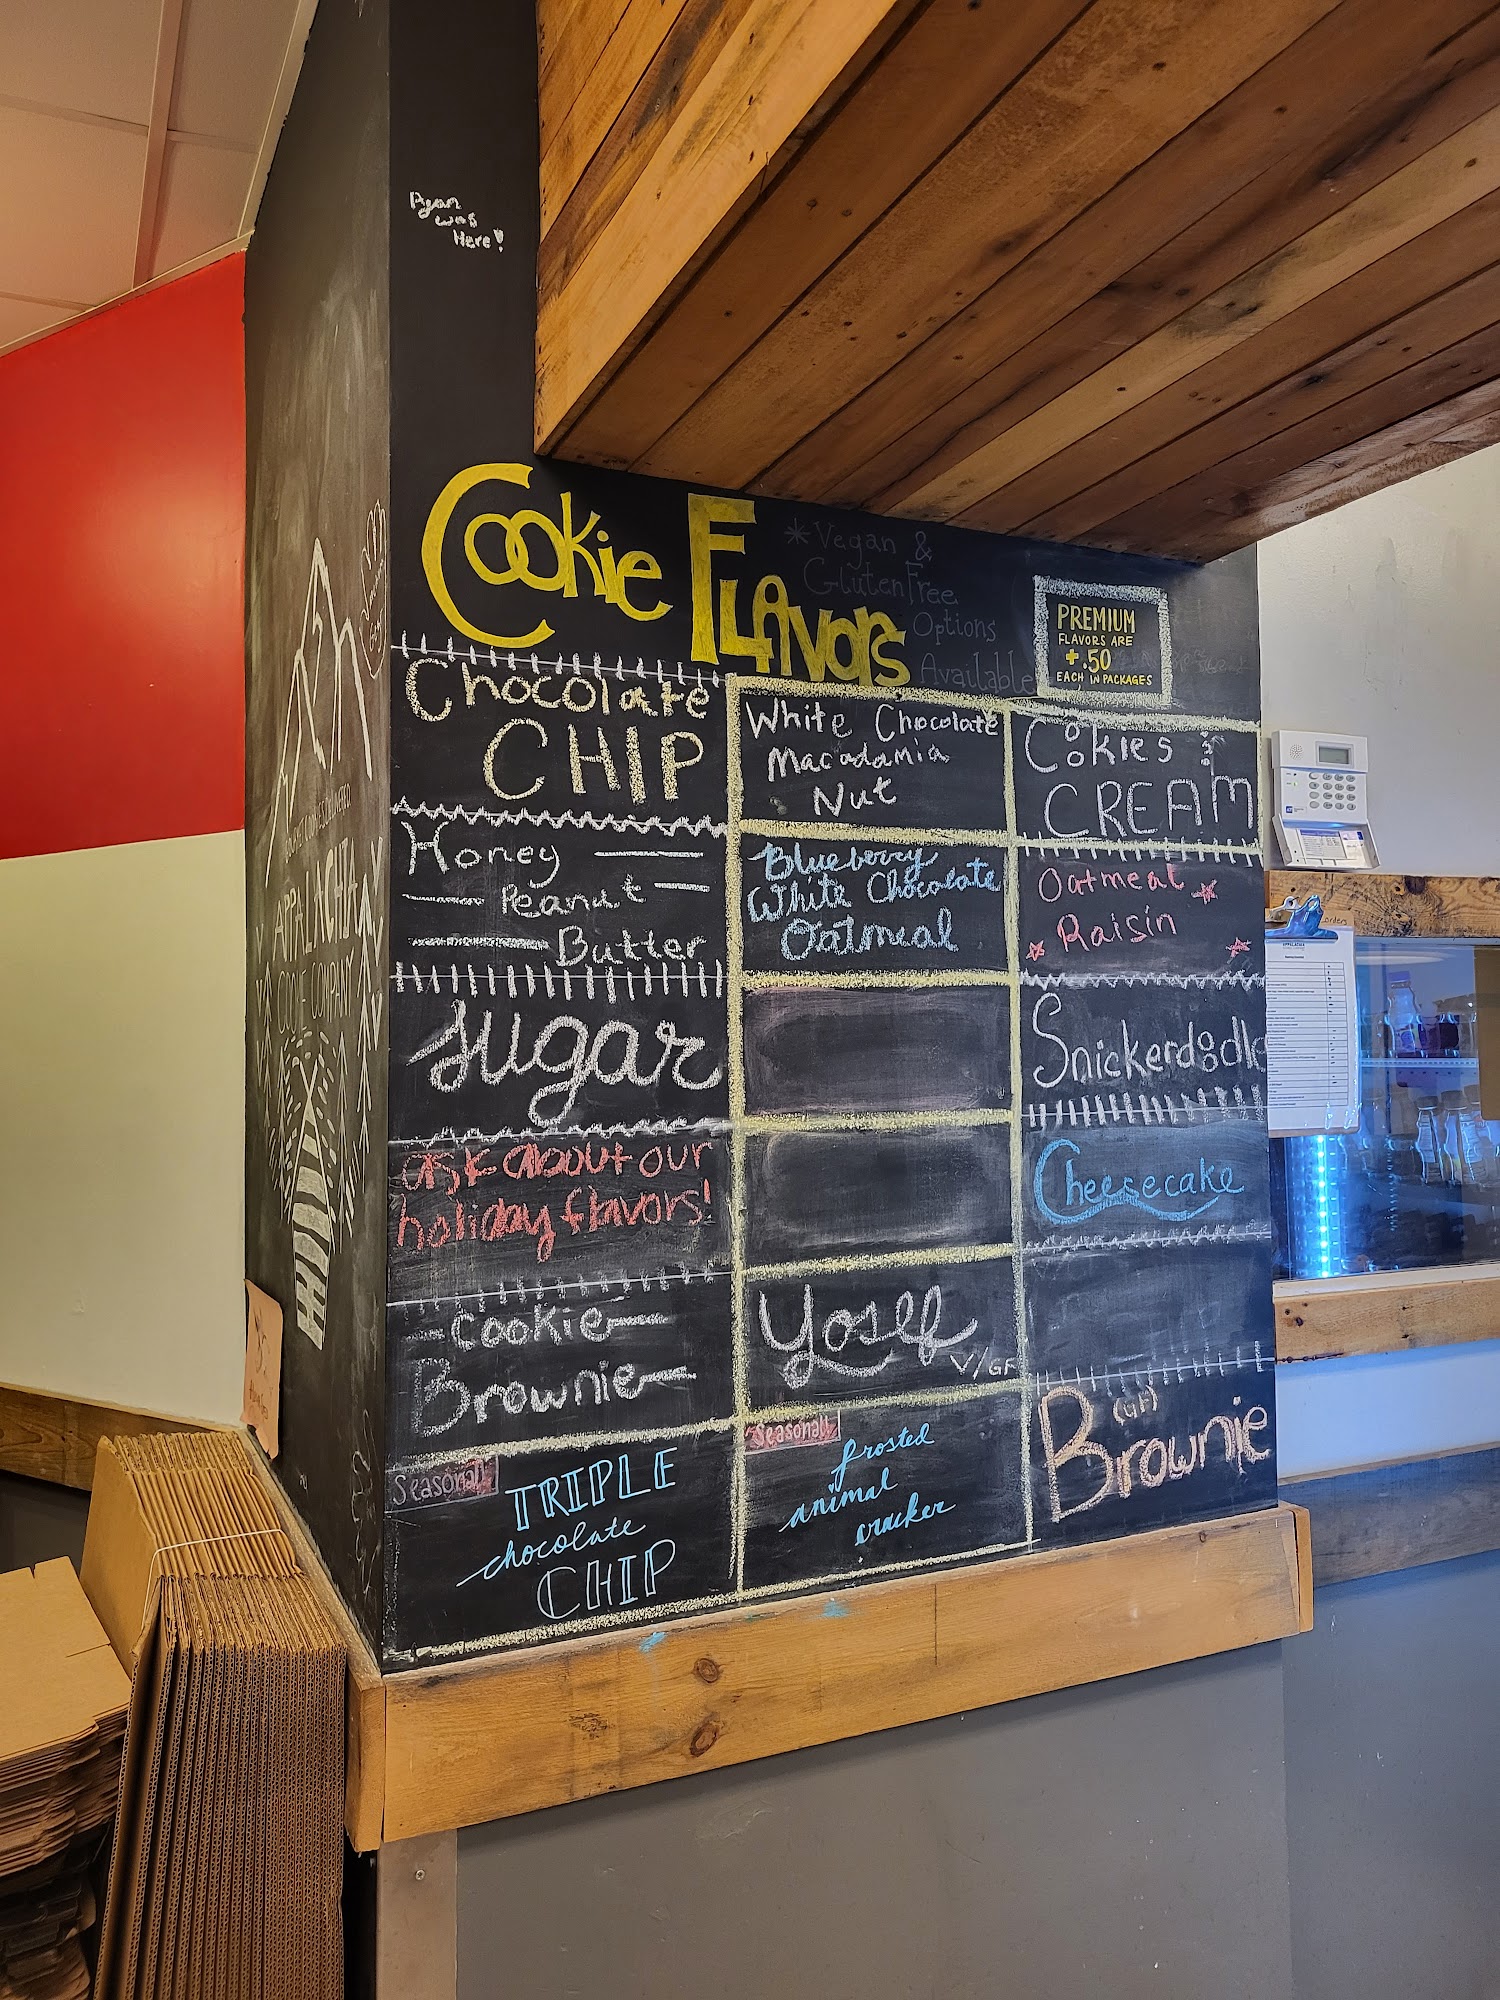 Ryan
was
Here!
Cookie Flavors
*Vegan &
GlutenFree
Options
Available
PREMIUM
FLAVORS ARE
+.50
EACH IN PACKAGES
Chocolate
CHIP
Honey
Peanut
Butter
Sugar
ask about our
holiday flavors!
Cookie
Brownie
Seasonal!
TRIPLE
chocolate
CHIP
White Chocolate
Macadamia
Nut
Blueberry
White Chocolate
Oatmeal
Yosef
V/GF
Seasonal!
frosted
animal
cracker
Cookies &
CREAM
Oatmeal
Raisin
Snickerdoodle
Cheesecake
(GF)
Brownie
APPALACHIAN
COOKIE COMPANY